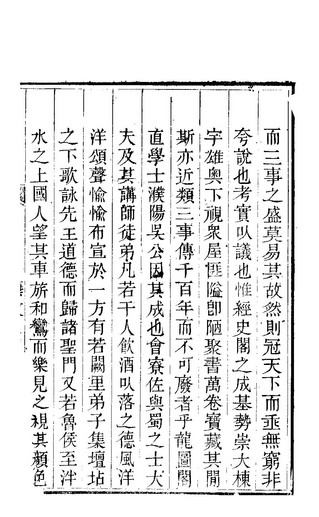 而二事之盛莫易其故然則冠天下而垂無窮非
夸說也考實以議也惟經史閣之成基勢崇大棟
宇雄奥下視衆屋匪隘卽陋聚書萬卷寳藏其閒
斯亦近類三事傳千百年而不可廢者乎龍圖閣
直學士濮陽吳公因其成也會寮佐與蜀之士大
夫及其講師徒弟凡若干人飲酒以落之德風洋
洋頌聲愉愉布宣於一方有若闕里弟子集壇坫
之下歌詠先王道德而歸諸聖門又若魯侯至泮
水之上國人望其車旂和鸞而樂見之視其顏色